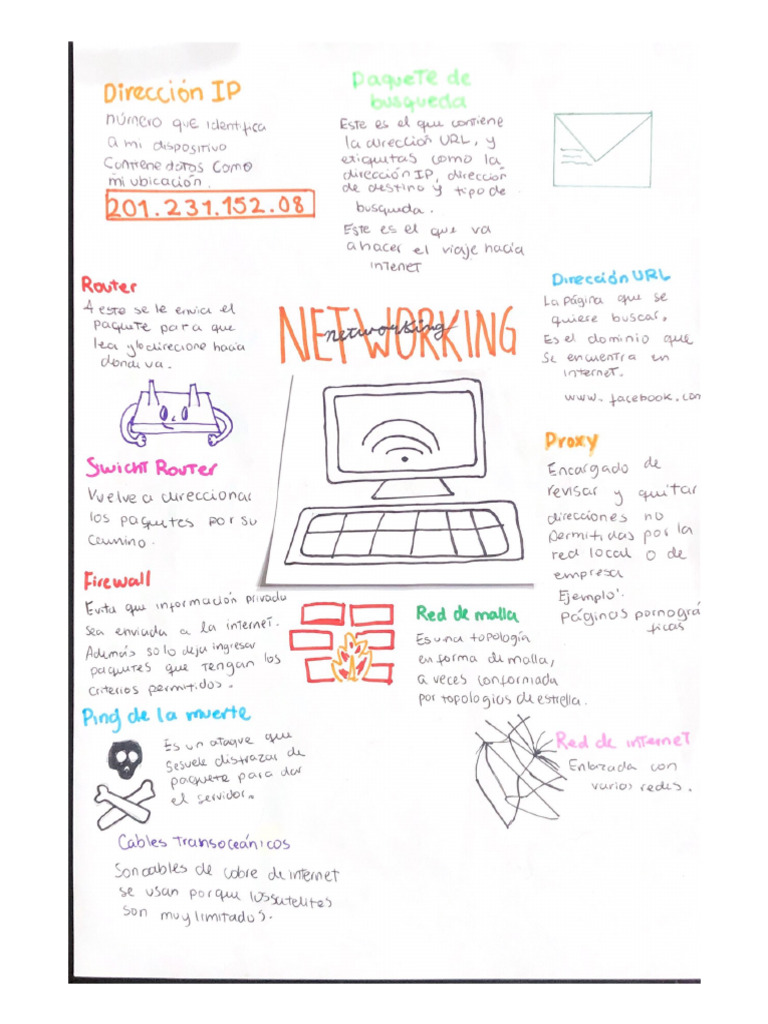 Dirección IP
número que identifica
a mi dispositivo
Contiene datos como
mi ubicación.
201.231.152.08
Paquete de
busqueda
Este es el que contiene
la dirección URL, y
etiquetas como la
dirección IP, dirección
de destino y tipo de
busqueda.
Este es el que va
a hacer el viaje hacia
intenet
Router
A este se le envia el
paquete para que
lea y lo direcione hacia
donde va.
NETWORKING
networking
Dirección URL
La página que se
quiere buscar,
Es el dominio que
se encuentra en
internet.
www.facebook.com
Swicht Router
Vuelve a direccionar
los paquetes por su
camino.
Proxy
Encargado de
revisar y quitar
direcciones no
permitidas por la
red local o de
empresa
Ejemplo:
Páginas pornográ
ficas
Firewall
Evita que información privada
sea enviada a la internet.
Además solo deja ingresar
paquetes que tengan los
criterios permitidos.
Red de malla
Es una topología
en forma de malla,
a veces conformada
por topologios de estrella.
Ping de la muerte
Es un ataque que
se suele disfrazar de
paquete para dar
el servidor.
Red de internet
Enlazada con
varios redes.
Cables transoceánicos
Son cables de cobre de internet
se usan porque los satelites
son muy limitados.